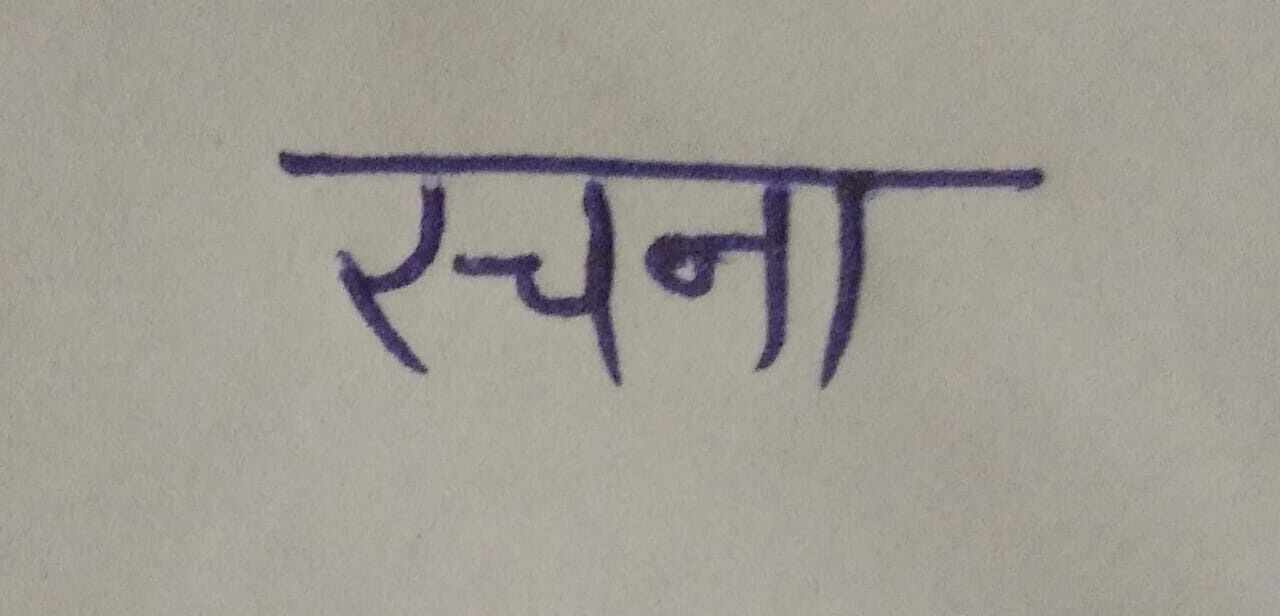 रचना